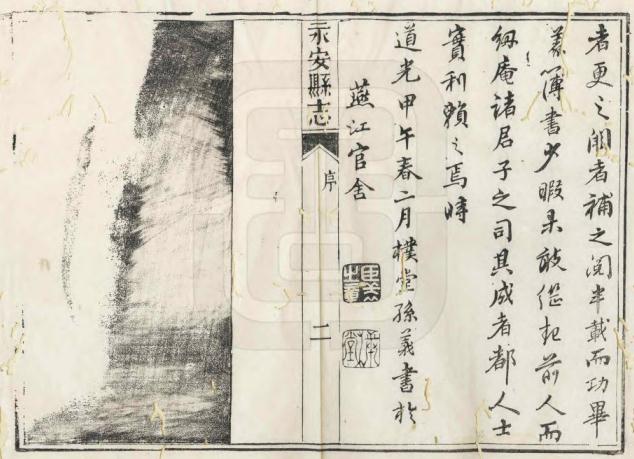 者更之闕者補之閱半載而功畢
義簿書少暇未敢繼軌前人而
紉庵諸君子之司其成者都人士
實利賴之焉時
道光甲午春二月樸堂孫義書於
燕江官舍
永安縣志
序
二